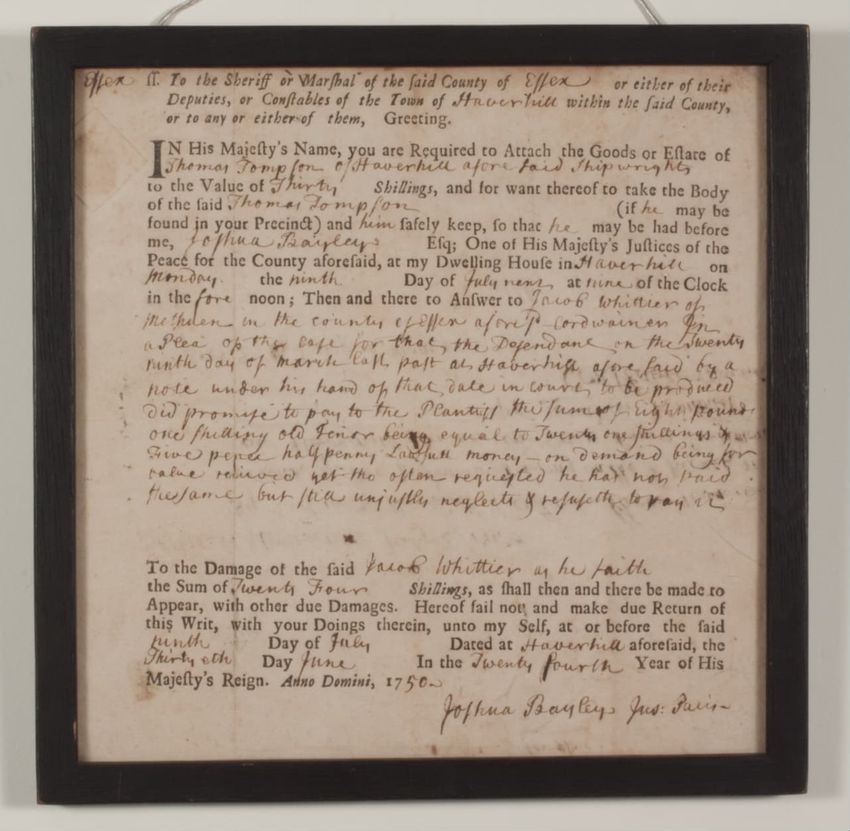 Essex ſſ. To the Sheriff or Marſhal of the ſaid County of Essex or either of their
Deputies, or Conſtables of the Town of Haverhill within the ſaid County,
or to any or either of them, Greeting.
IN His Majeſty's Name, you are Required to Attach the Goods or Eſtate of
Thomas Tompson of Haverhill afore said Shipwright
to the Value of Thirty Shillings, and for want thereof to take the Body
of the ſaid Thomas Tompson (if he may be
found in your Precinct) and him ſafely keep, ſo that he may be had before
me, Joshua Bayley Eſq; One of His Majeſty's Juſtices of the
Peace for the County aforeſaid, at my Dwelling Houſe in Haverhill on
Monday the ninth Day of July next at nine of the Clock
in the fore noon; Then and there to Anſwer to Jacob Whittier of
Methuen in the county of Essex cordwainer In
a Plea of the case for that the Defendant on the Twenty
ninth day of march last past at Haverhill afore said by a
note under his hand of that date in court to be produced
did promise to pay to the Plantiff the sum of Eight pounds
one shilling old Tenor being equal to Twenty one shillings &
Five pence half penny Lawfull money on demand being for
value received yet tho often requested he has not paid
the same but still unjustly neglects & refuseth to pay it
To the Damage of the ſaid Jacob Whittier as he saith
the Sum of Twenty Four Shillings, as ſhall then and there be made to
Appear, with other due Damages. Hereof fail not, and make due Return of
this Writ, with your Doings therein, unto my Self, at or before the ſaid
ninth Day of July Dated at Haverhill aforeſaid, the
Thirty eth Day June In the Twenty fourth Year of His
Majeſty's Reign. Anno Domini, 1750
Joshua Bayley Jus: Pacis